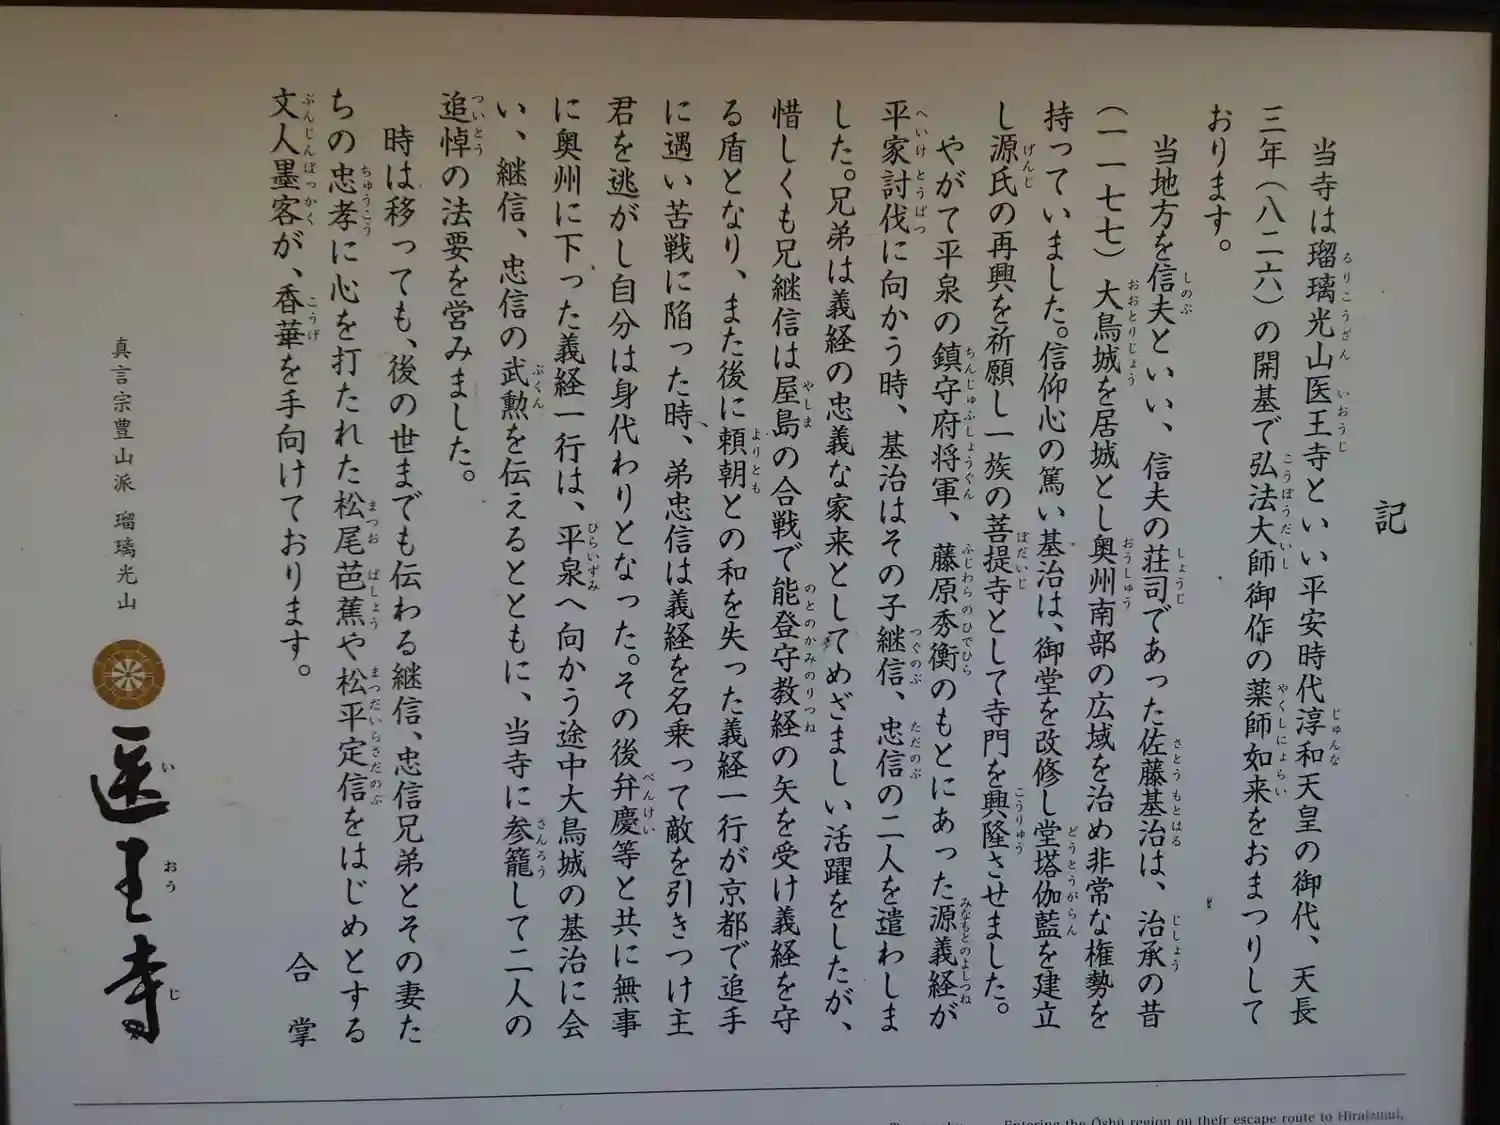 記
当寺は瑠璃光山医王寺といい平安時代淳和天皇の御代、天長
三年（八二六）の開基で弘法大師御作の薬師如来をおまつりして
おります。
当地方を信夫といい、信夫の荘司であった佐藤基治は、治承の昔
（一一七七）大鳥城を居城とし奥州南部の広域を治め非常な権勢を
持っていました。信仰心の篤い基治は、御堂を改修し堂塔伽藍を建立
し源氏の再興を祈願し一族の菩提寺として寺門を興隆させました。
やがて平泉の鎮守府将軍、藤原秀衡のもとにあった源義経が
平家討伐に向かう時、基治はその子継信、忠信の二人を遣わしま
した。兄弟は義経の忠義な家来としてめざましい活躍をしたが、
惜しくも兄継信は屋島の合戦で能登守教経の矢を受け義経を守
る盾となり、また後に頼朝との和を失った義経一行が京都で追手
に遇い苦戦に陥った時、弟忠信は義経を名乗って敵を引きつけ主
君を逃がし自分は身代わりとなった。その後弁慶等と共に無事
に奥州に下った義経一行は、平泉へ向かう途中大鳥城の基治に会
い、継信、忠信の武勲を伝えるとともに、当寺に参籠して二人の
追悼の法要を営みました。
時は移っても、後の世までも伝わる継信、忠信兄弟とその妻た
ちの忠孝に心を打たれた松尾芭蕉や松平定信をはじめとする
文人墨客が、香華を手向けております。
合掌
真言宗豊山派 瑠璃光山
医王寺
Entering the Ōshū region on their escape route to Hiraizumi,